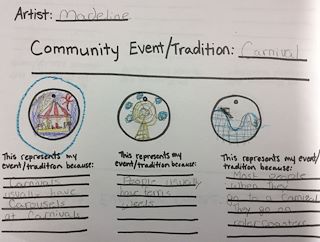 Artist: Madeline
Community Event/Tradition: Carnival
This represents my
event/tradition because:
Carnivals
usually have
Carousels
at Carnivals
This represents my
event/tradition because:
People usually
have ferris
weels
This represents my
event/tradition because:
Most people
when they
go to a Carnival
They go on
rolercoasters